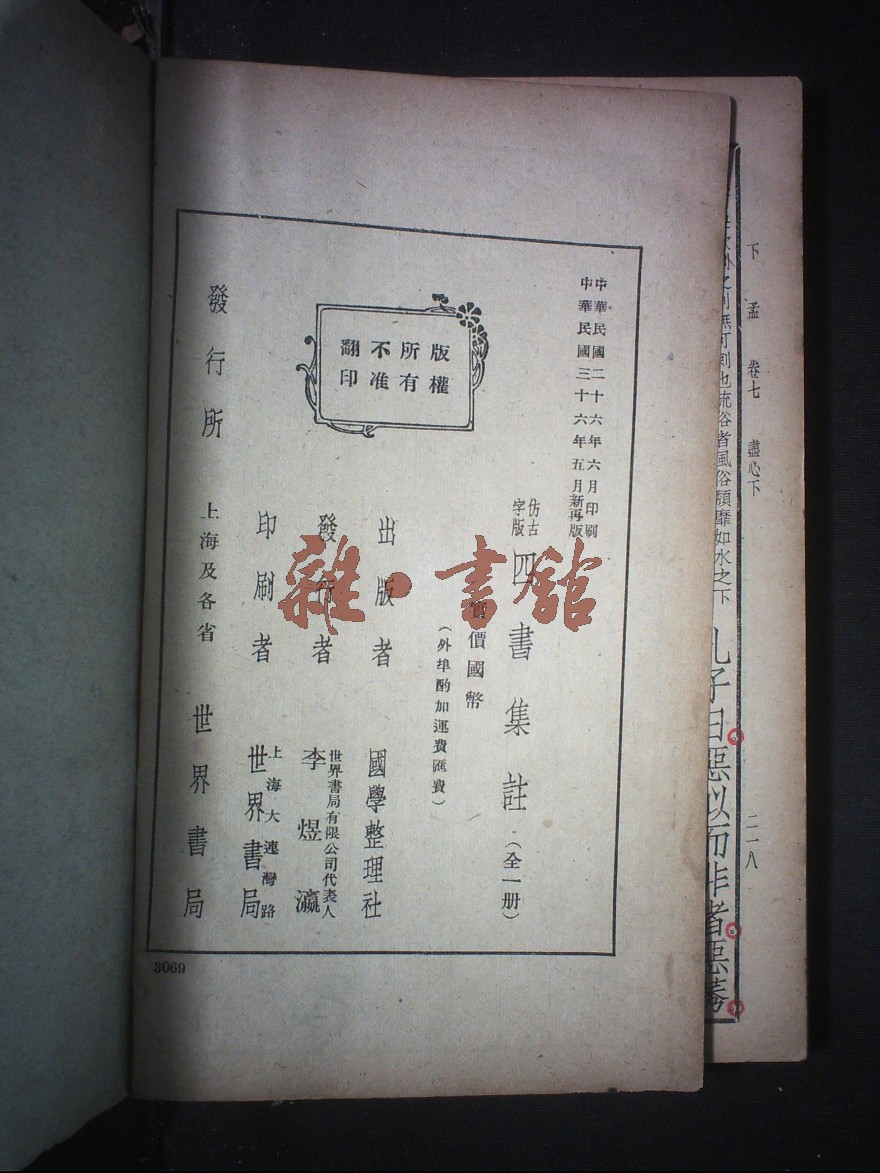 中華民國二十六年六月印刷
中華民國三十六年五月新再版
仿古
字版
四書集註(全一册)
實價國幣
(外埠酌加運費匯費)
版權
所有
不准
翻印
出版者 國學整理社
發行者 世界書局有限公司代表人
李煜瀛
印刷者 上海大連灣路
世界書局
發行所 上海及各省 世界書局
3069
雜·書館
下孟 卷七 盡心下 二一八
也流俗者風俗頹靡如水之下
孔子曰惡似而非者惡莠